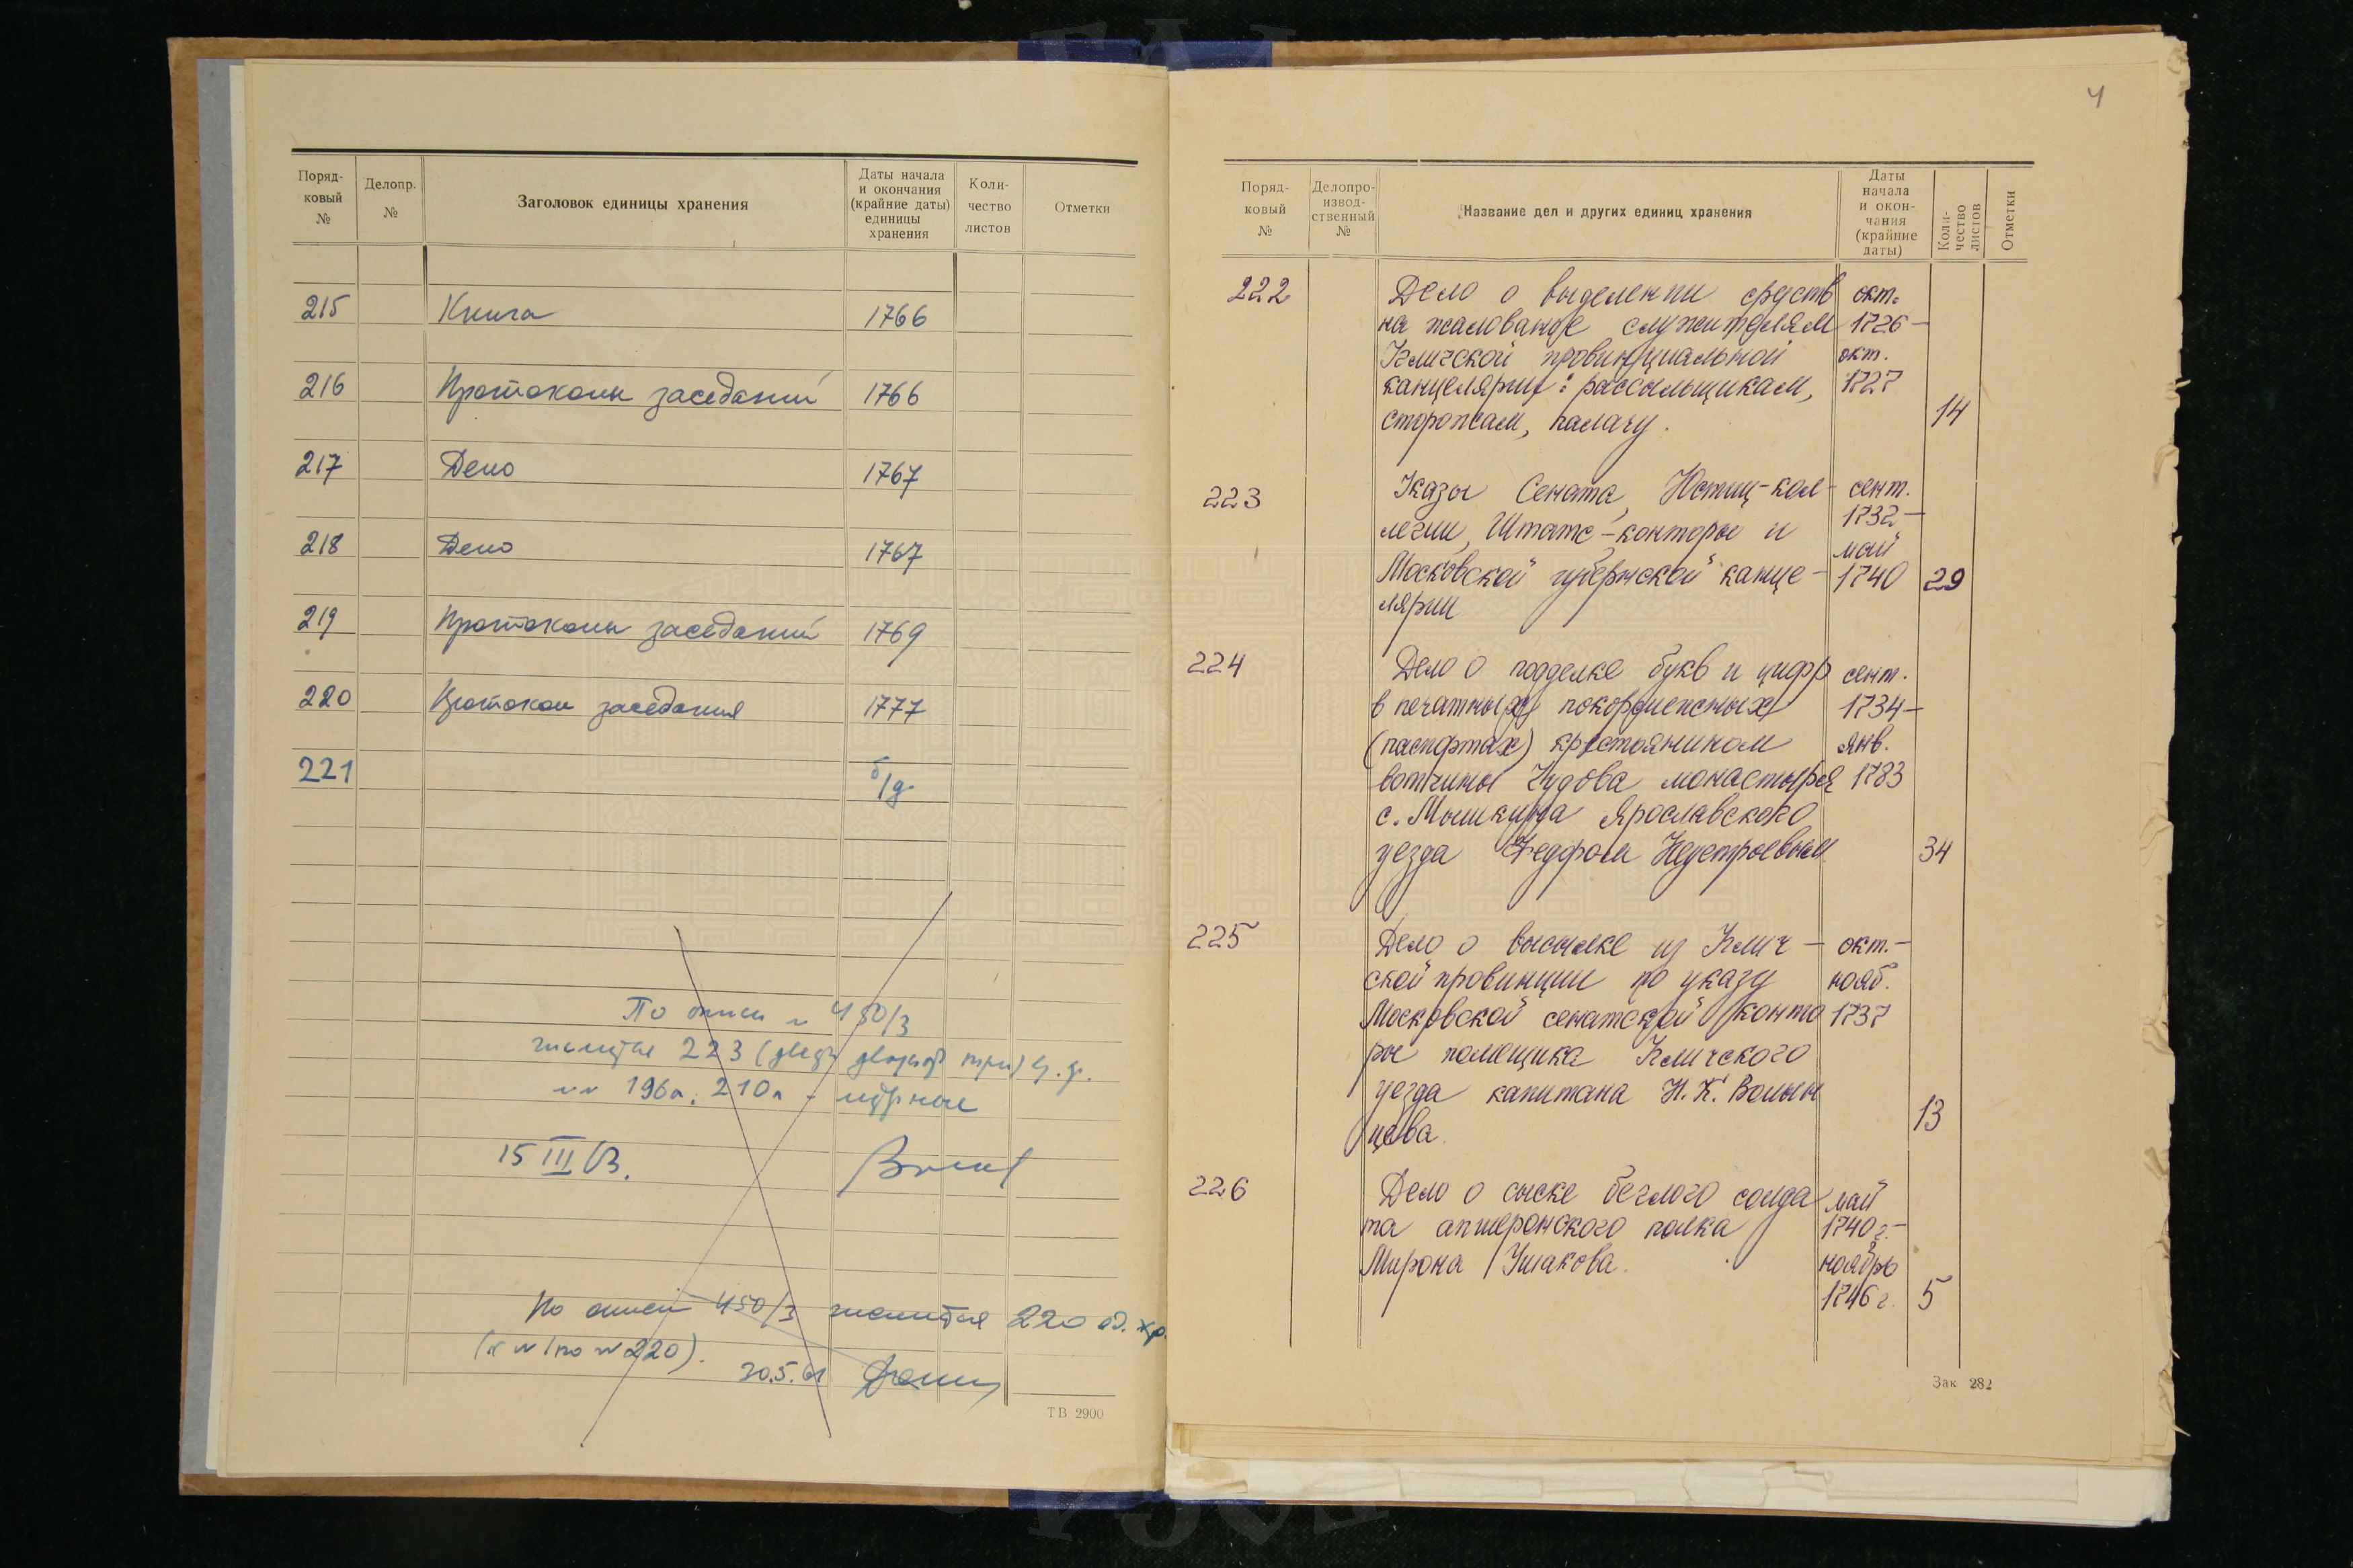 Поряд-
ковый
№
Делопр.
№
Заголовок единицы хранения
Даты начала
и окончания
(крайние даты)
единицы
хранения
Коли-
чество
листов
Отметки
215 Книга 1766
216 Протоколы заседаний 1766
217 Дело 1767
218 Дело 1767
219 Протоколы заседаний 1769
220 Протокол заседания 1777
221 б/д
По описи № 450/3
числится 223 (двести двадцать три) ед. хр.
№№ 196а, 210а - литерные
15 III
По описи 450/3 числится 220 ед. хр.
(с №1 по №220).
30.5.61
ТВ 2900
4
Поряд-
ковый
№
Делопро-
извод-
ственный
№
Название дел и других единиц хранения
Даты
начала
и окон-
чания
(крайние
даты)
Коли-
чество
листов
Отметки
222 Дело о выделении средств окт.
на жалованье служителям 1726-
Угличской провинциальной окт.
канцелярии: рассыльщикам, 1727
сторожам, палачу. 14
223 Указы Сената, Юстиц-кол- сент.
легии, Штатс-конторы и 1732-
май
Московской губернской канце- 1740 29
лярии
224 Дело о подделке букв и цифр сент.
в печатных покормежных 1734-
(паспортах) крестьянином янв.
вотчины Чудова монастыря 1783
с. Мышкина Ярославского
уезда Федором Нестеровым 34
225 Дело о высылке из Углич- окт.-
ской провинции по указу нояб.
Московской сенатской конто 1737
ры помещика Угличского
уезда капитана И. К. Волын
цева. 13
226 Дело о сыске беглого солда май
та апшеронского полка 1740 г.-
Мирона Ушакова. ноябрь
1746 г. 5
Зак 282